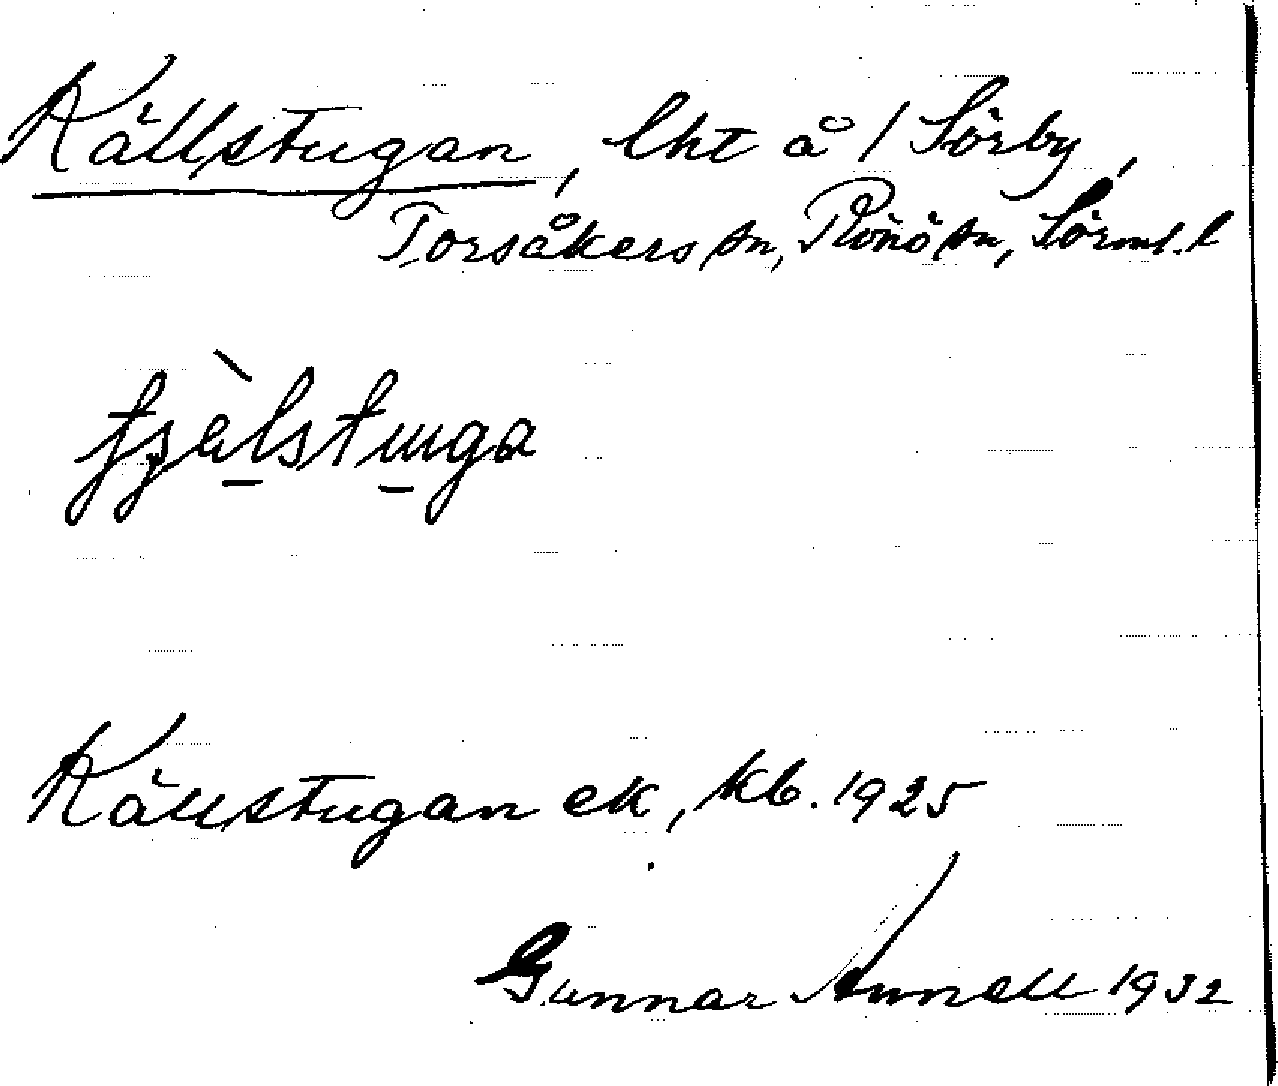 Källstugan, lht å / Sörby,
Torsåkers sn, Rönö sn, Sörml. l
tjälstuga
Källstugan ek, kb. 1925
Gunnar Annell 1932